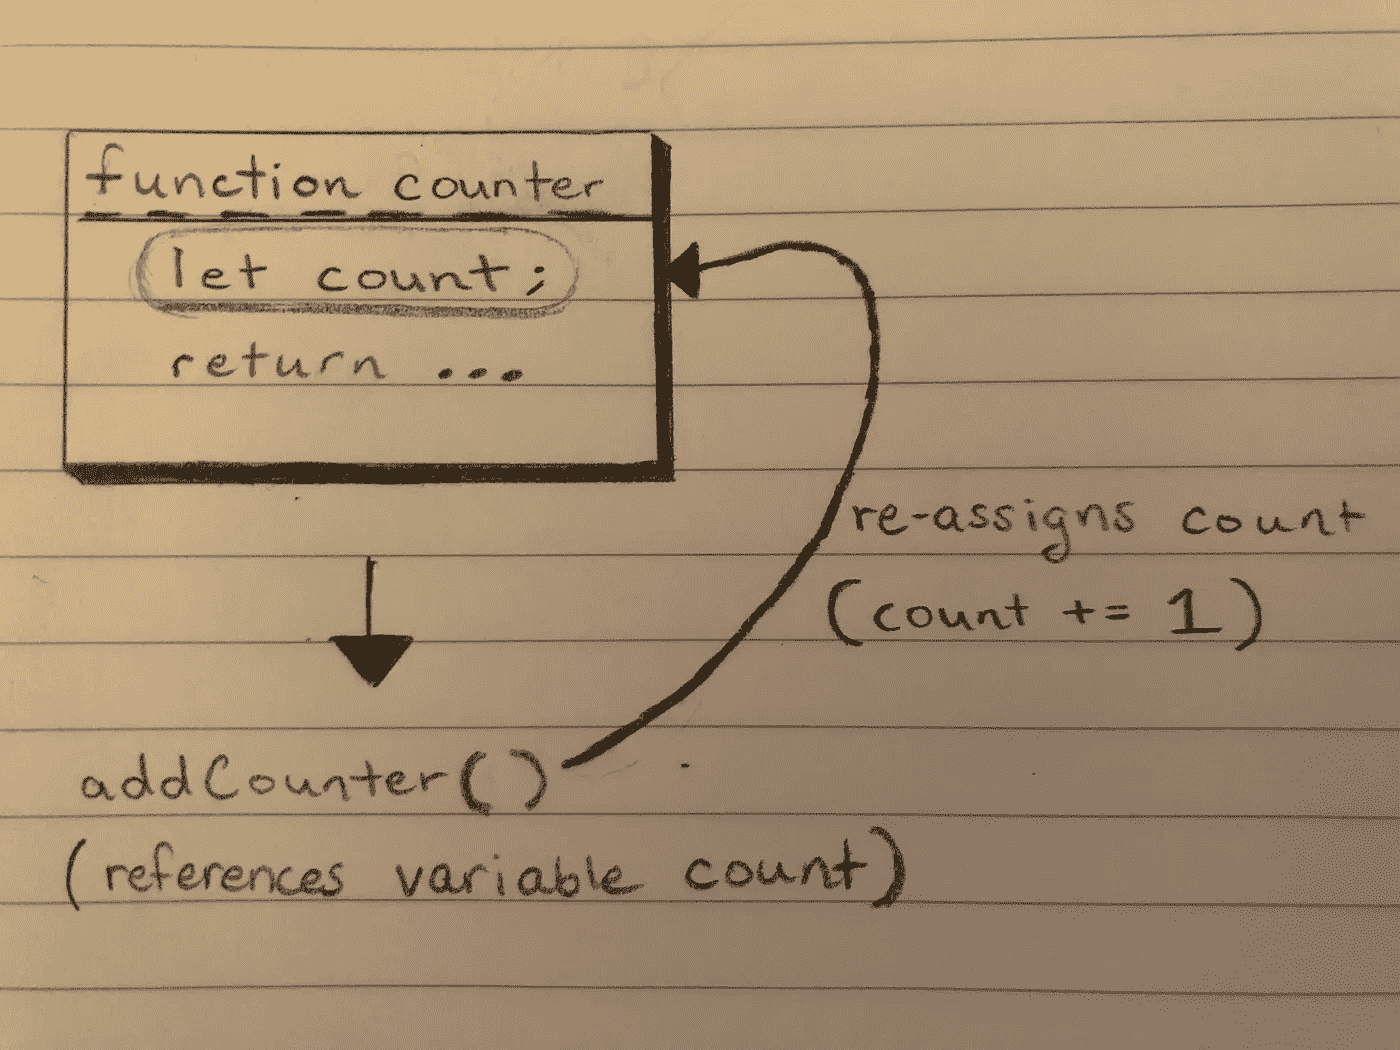 function counter
let count;
return ...
re-assigns count
(count += 1)
addCounter()
(references variable count)